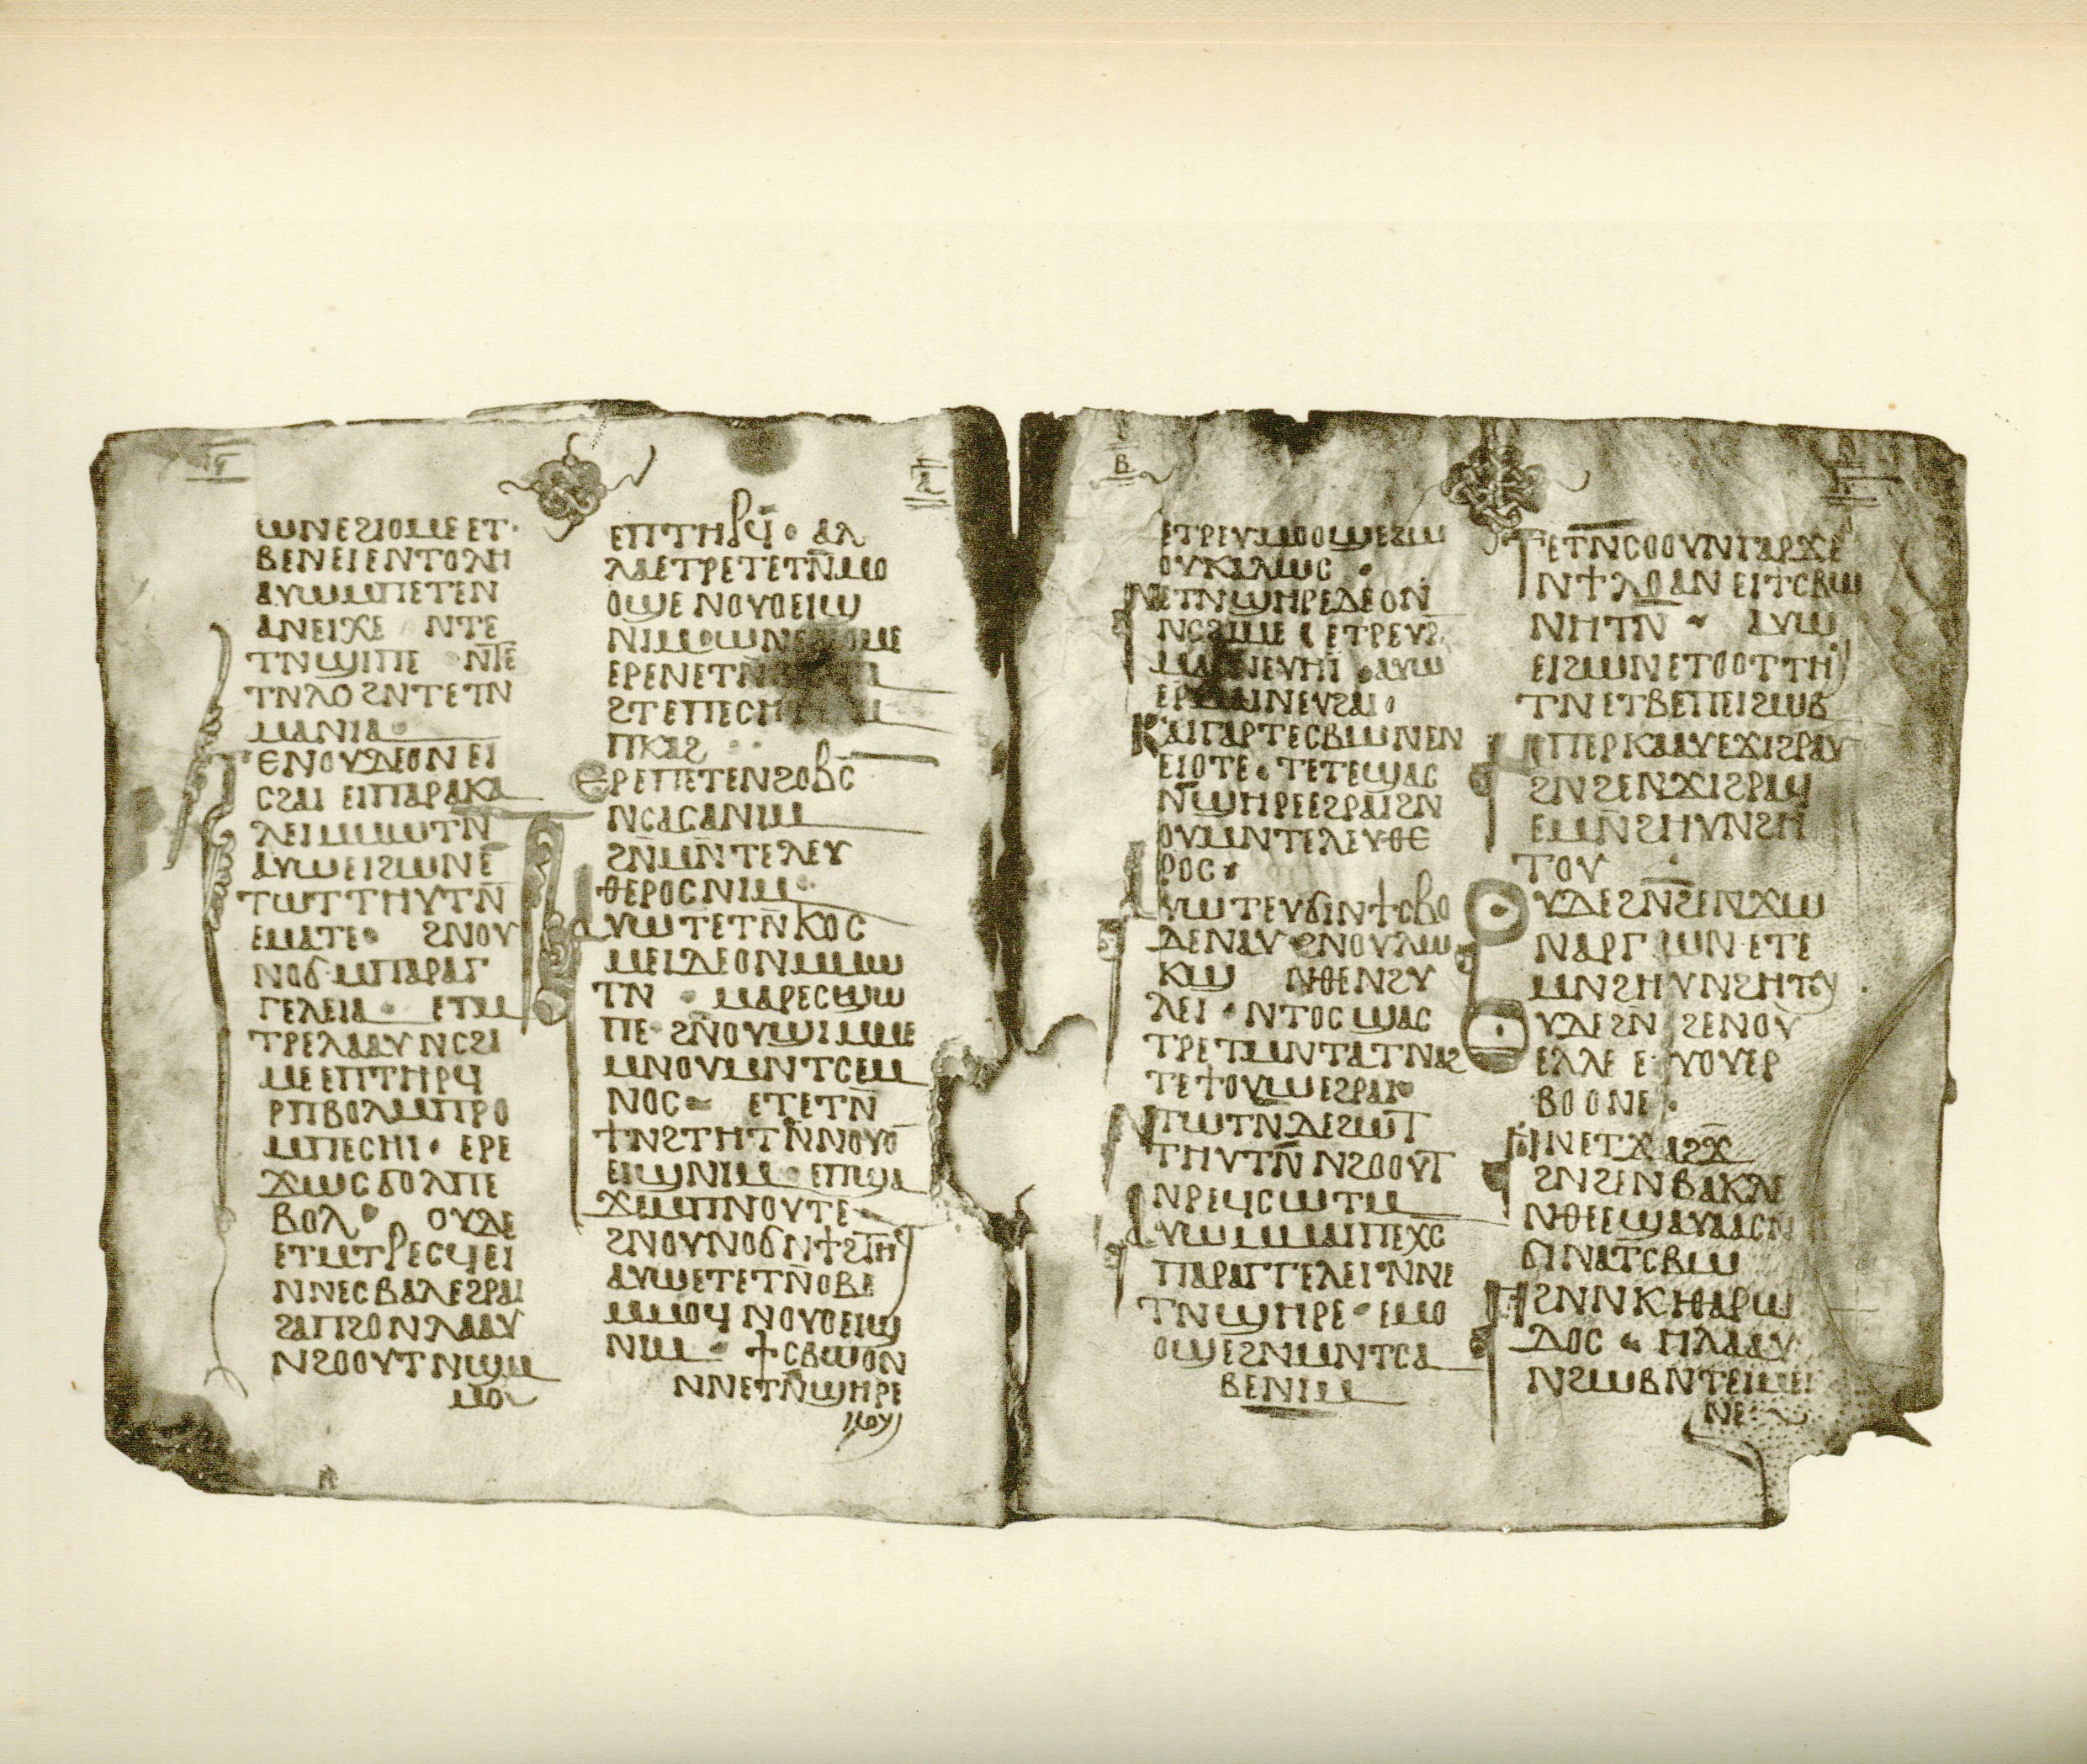 ⲱⲛⲉϩⲓⲟⲙⲉ ⲉⲧ
ⲃⲉⲛⲉⲓⲉⲛⲧⲟⲗⲏ
ⲁⲩⲱ ⲙⲡⲉⲧⲉⲛ
ⲁⲛⲉⲓⲭⲉ ⲛⲧⲉ
ⲧⲛϣⲓⲡⲉ ⲛⲧⲉ
ⲧⲛⲗⲟ ϩⲛⲧⲉⲧⲛ
ⲙⲁⲛⲓⲁ
ⲧⲉⲛⲟⲩ ⲇⲉ ⲟⲛ ⲉⲓ
ⲥϩⲁⲓ ⲉⲓⲡⲁⲣⲁⲕⲁ
ⲗⲉⲓ ⲙⲙⲱⲧⲛ
ⲁⲩⲱ ⲉⲓϩⲱⲛ ⲉ
ⲧⲱⲧⲧⲏⲩⲧⲛ̄
ⲉⲙⲁⲧⲉ· ϩⲛⲟⲩ
ⲛⲟϭ ⲙⲡⲁⲣⲁⲅ
ⲅⲉⲗⲉⲓⲁ· ⲉⲧⲙ
ⲧⲣⲉⲗⲁⲁⲩ ⲛⲥϩⲓ
ⲙⲉ ⲉⲡⲧⲏⲣϥ
ⲣⲡⲃⲟⲗ ⲙⲡⲣⲟ
ⲙⲡⲉⲥⲏⲓ· ⲉⲣⲉ
ϫⲱⲥ ϭⲟⲗⲡ ⲉ
ⲃⲟⲗ· ⲟⲩⲇⲉ
ⲉⲧⲙⲧⲣⲉⲥϥⲉⲓ
ⲛⲛⲉⲥⲃⲁⲗ ⲉϩⲣⲁⲓ
ϩⲁⲡϩⲟ ⲛⲗⲁⲁⲩ
ⲛϩⲟⲟⲩⲧ ⲛϣⲙ
ⲙⲟ
ⲉⲡⲧⲏⲣϥ̄· ⲁⲗ
ⲗⲁ ⲉⲧⲣⲉⲧⲉⲧⲛ̄ⲙⲟ
ⲟϣⲉ ⲛⲟⲩⲟⲉⲓϣ
ⲛⲓⲙ
ⲉⲣⲉⲛⲉⲧⲛ̄
ϩⲧ ⲉⲡⲉⲥⲏⲧ
ⲡⲕⲁϩ
ⲉⲣⲉⲡⲉⲧⲉⲛϩⲟⲃⲥ
ⲛⲥⲁⲥⲁ ⲛⲓⲙ
ϩⲛ̄ⲙⲛⲧⲉⲗⲉⲩ
ⲑⲉⲣⲟⲥ ⲛⲓⲙ·
ⲁⲩⲱ ⲧⲉⲧⲛ̄ⲕⲟⲥ
ⲙⲉⲓ ⲇⲉ ⲟⲛ ⲙⲙⲱ
ⲧⲛ · ⲙⲁⲣⲉⲥϣⲱ
ⲡⲉ· ϩⲛ̄ⲟⲩϣⲓⲡⲉ
ⲙⲛⲟⲩⲙⲛⲧⲥⲉⲙ
ⲛⲟⲥ· ⲉⲧⲉⲧⲛ
ϯⲛϩⲧⲏⲧⲛ̄ ⲛⲟⲩⲟ
ⲉⲓϣ ⲛⲓⲙ· ⲉⲡϣⲁ
ϫⲉ ⲙⲡⲛⲟⲩⲧⲉ·
ϩⲛⲟⲩⲛⲟϭ ⲛϯϩⲧⲏϥ
ⲁⲩⲱ ⲉⲧⲉⲧⲛ̄ⲟⲃⲉ
ⲙⲙⲟϥ ⲛⲟⲩⲟⲉⲓϣ
ⲛⲓⲙ· ϯⲥⲃⲱ ⲟⲛ
ⲛⲛⲉⲧⲛ̄ϣⲏⲣⲉ
ⲕⲟⲩⲓ
ⲃ
ⲉⲧⲣⲉⲩⲙⲟⲟϣⲉ ϩⲱ
ⲟⲩ ⲕⲁⲗⲱⲥ ·
ⲛⲉⲧⲛϣⲏⲣⲉ ⲇⲉ ⲟⲛ
ⲛⲥϩⲓⲙⲉ ⲉⲧⲣⲉⲩϩ
ⲛⲉⲩⲏⲓ· ⲁⲩⲱ
ⲛⲉⲩϩⲁⲓ·
ⲕⲁⲓⲅⲁⲣ ⲧⲉⲥⲃⲱ ⲛⲛⲉⲛ
ⲉⲓⲟⲧⲉ· ⲧⲉⲧⲉϣⲁⲥ
ⲛ̄ϣⲏⲣⲉ ⲉϩⲣⲁⲓ ϩⲛ
ⲟⲩⲙⲛⲧⲉⲗⲉⲩⲑⲉ
ⲣⲟⲥ·
ⲁⲩⲱ ⲧⲉⲩϭⲓⲛϯⲥⲃⲟ
ⲇⲉ ⲛⲁⲩ ϩⲛⲟⲩⲗⲱ
ⲕϣ ⲛⲑⲉ ⲛϩⲩ
ⲗⲉⲓ· ⲛⲧⲟⲥ ϣⲁⲥ
ⲧⲣⲉⲧⲙⲛⲧⲁⲧⲛⲁϩ
ⲧⲉ ϯⲟⲩⲱ ⲉϩⲣⲁⲓ·
ⲛⲧⲱⲧⲛ ⲇⲉ ϩⲱⲧ
ⲧⲏⲩⲧⲛ̄ ⲛϩⲟⲟⲩⲧ
ⲛⲣⲉϥⲥⲱⲧⲙ
ⲁⲩⲱ ⲙⲙⲁⲓⲡⲉⲭⲥ
ⲡⲁⲣⲁⲅⲅⲉⲗⲉⲓ ⲛⲛⲉ
ⲧⲛϣⲏⲣⲉ· ⲉⲙⲟ
ⲟϣⲉ ϩⲛⲙⲛⲧⲥⲁ
ⲃⲉ ⲛⲓⲙ
ⲧⲉⲧⲛ̄ⲥⲟⲟⲩⲛ ⲅⲁⲣ ϫⲉ
ⲛϯⲗⲟ ⲁⲛ ⲉⲓϯⲥⲃⲱ
ⲛⲏⲧⲛ̄ · ⲁⲩⲱ
ⲉⲓϩⲱⲛ ⲉⲧⲟⲟⲧⲧⲏⲩ
ⲧⲛ ⲉⲧⲃⲉⲡⲉⲓϩⲱⲃ
ⲙⲡⲉⲣⲕⲁⲁⲩ ⲉϫⲓϩⲣⲁⲩ
ϩⲛϩⲉⲛϫⲓϩⲣⲁϥ
ⲉⲙⲛ̄ϩⲏⲩ ⲛϩⲏ
ⲧⲟⲩ
ⲟⲩⲇⲉ ϩⲛ̄ϩⲉⲛϫⲱ
ⲛⲁⲣⲅⲱⲛ ⲉⲧⲉ
ⲙⲛϩⲏⲩ ⲛϩⲏⲧϥ·
ⲟⲩⲇⲉ ϩⲛ ϩⲉⲛⲟⲩ
ⲉⲗⲗⲉ ⲉⲩⲟⲩⲉⲣ
ⲃⲟⲟⲛⲉ·
ϩⲛϩⲉⲛⲃⲁⲕⲗⲉ
ⲛⲑⲉ ⲉϣⲁⲩⲁⲁⲥ ⲛ
ϭⲓⲛⲁⲧⲥⲃⲱ
ⲏ ϩⲛⲛⲕⲏⲑⲁⲣⲱ
ⲇⲟⲥ · ⲏ ⲗⲁⲁⲩ
ⲛϩⲱⲃ ⲛⲧⲉⲓⲙⲉⲓ
ⲛⲉ